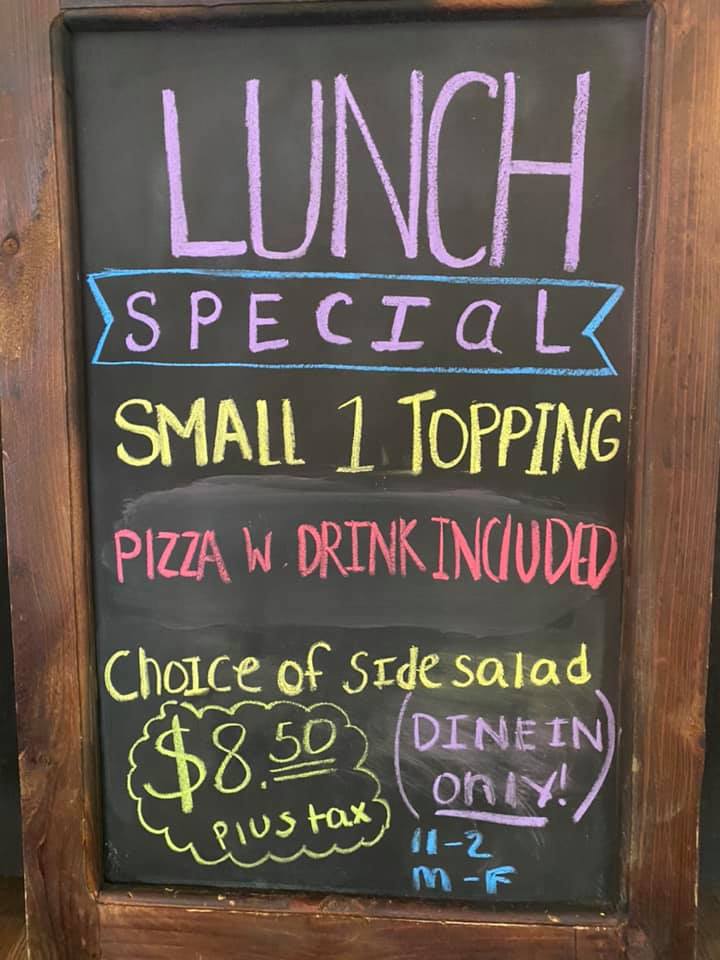 LUNCH
SPECIaL
SMALL 1 TOPPING
PIZZA W. DRINK INCIUDED
ChoIce of SIde salad
$8.50
plus tax
(DINE IN
only!)
11-2
M-F